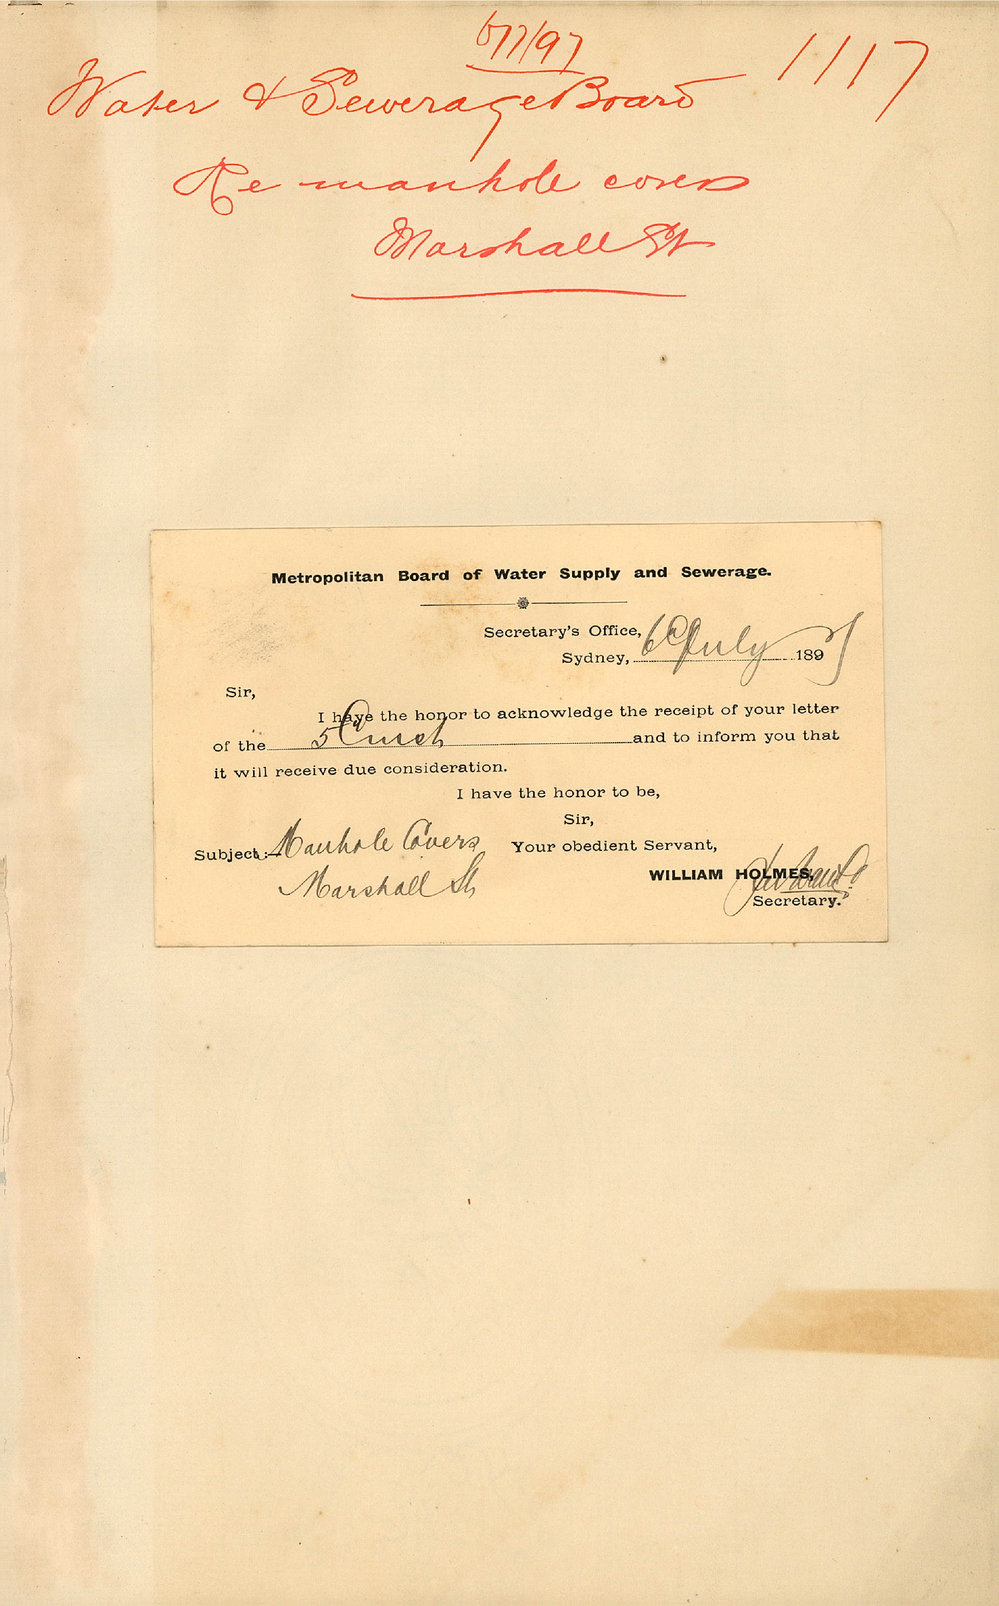 6/7/97
1117
Water & Sewerage Board
Re manhole covers
Marshall St
Metropolitan Board of Water Supply and Sewerage.
Secretary's Office,
Sydney, 6th July 1897
Sir,
I have the honor to acknowledge the receipt of your letter
of the 5th inst and to inform you that
it will receive due consideration.
I have the honor to be,
Sir,
Subject:- Manhole Covers Your obedient Servant,
Marshall St
WILLIAM HOLMES,
Secretary.